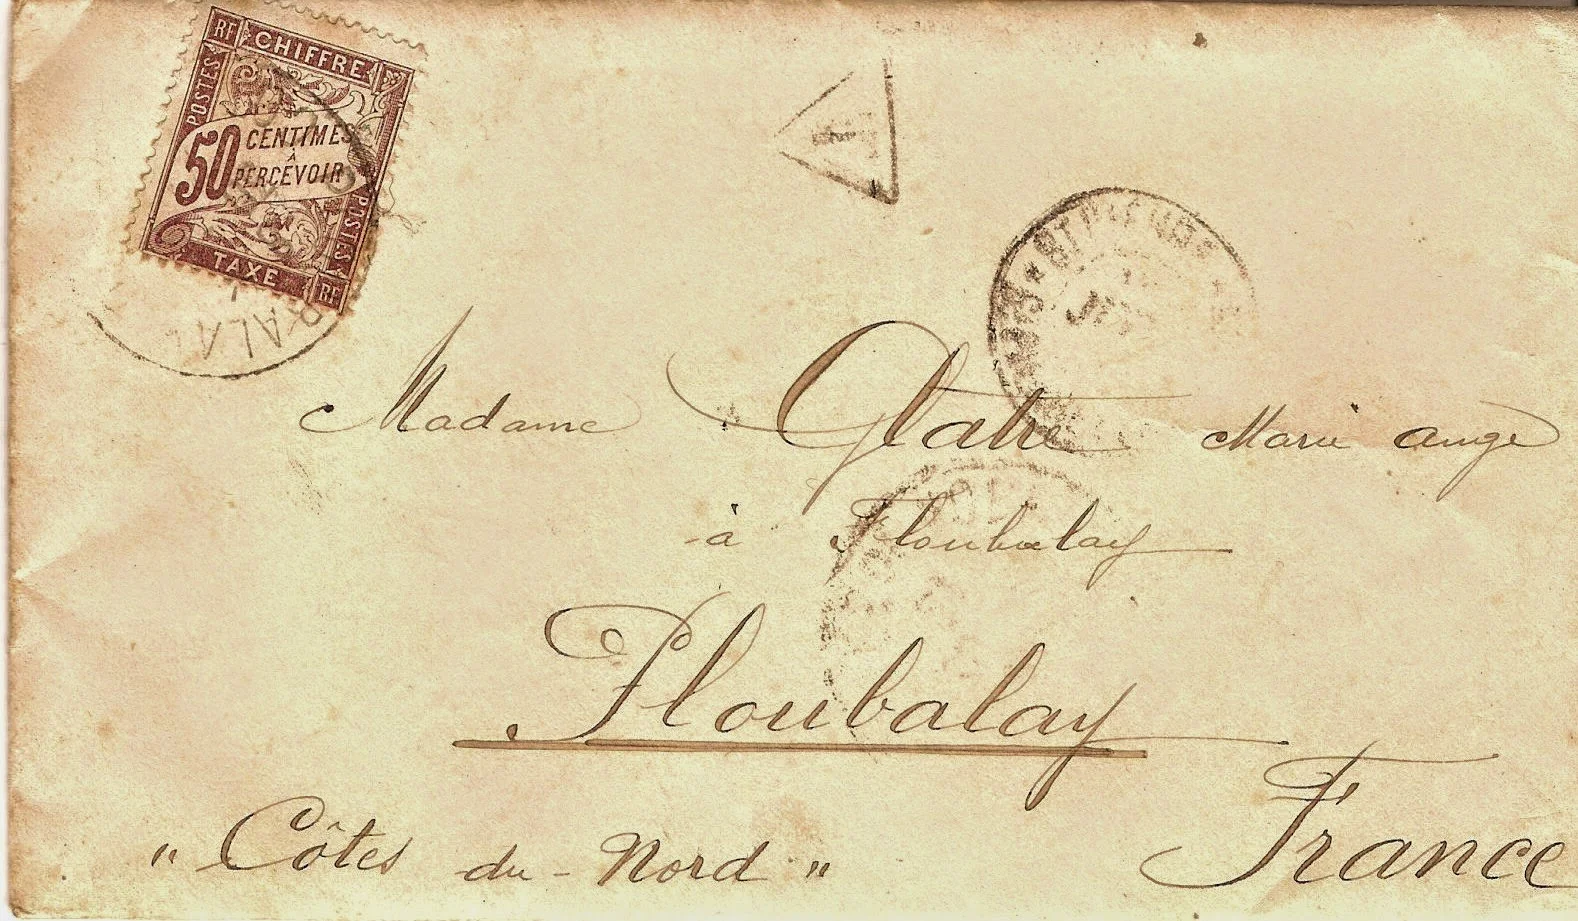 RF CHIFFRE
POSTES
50 CENTIMES
À
PERCEVOIR
POSTES
TAXE RF
T
Madame Glatre Marie ange
à Ploubalay
Ploubalay
"Côtes du-Nord"
France